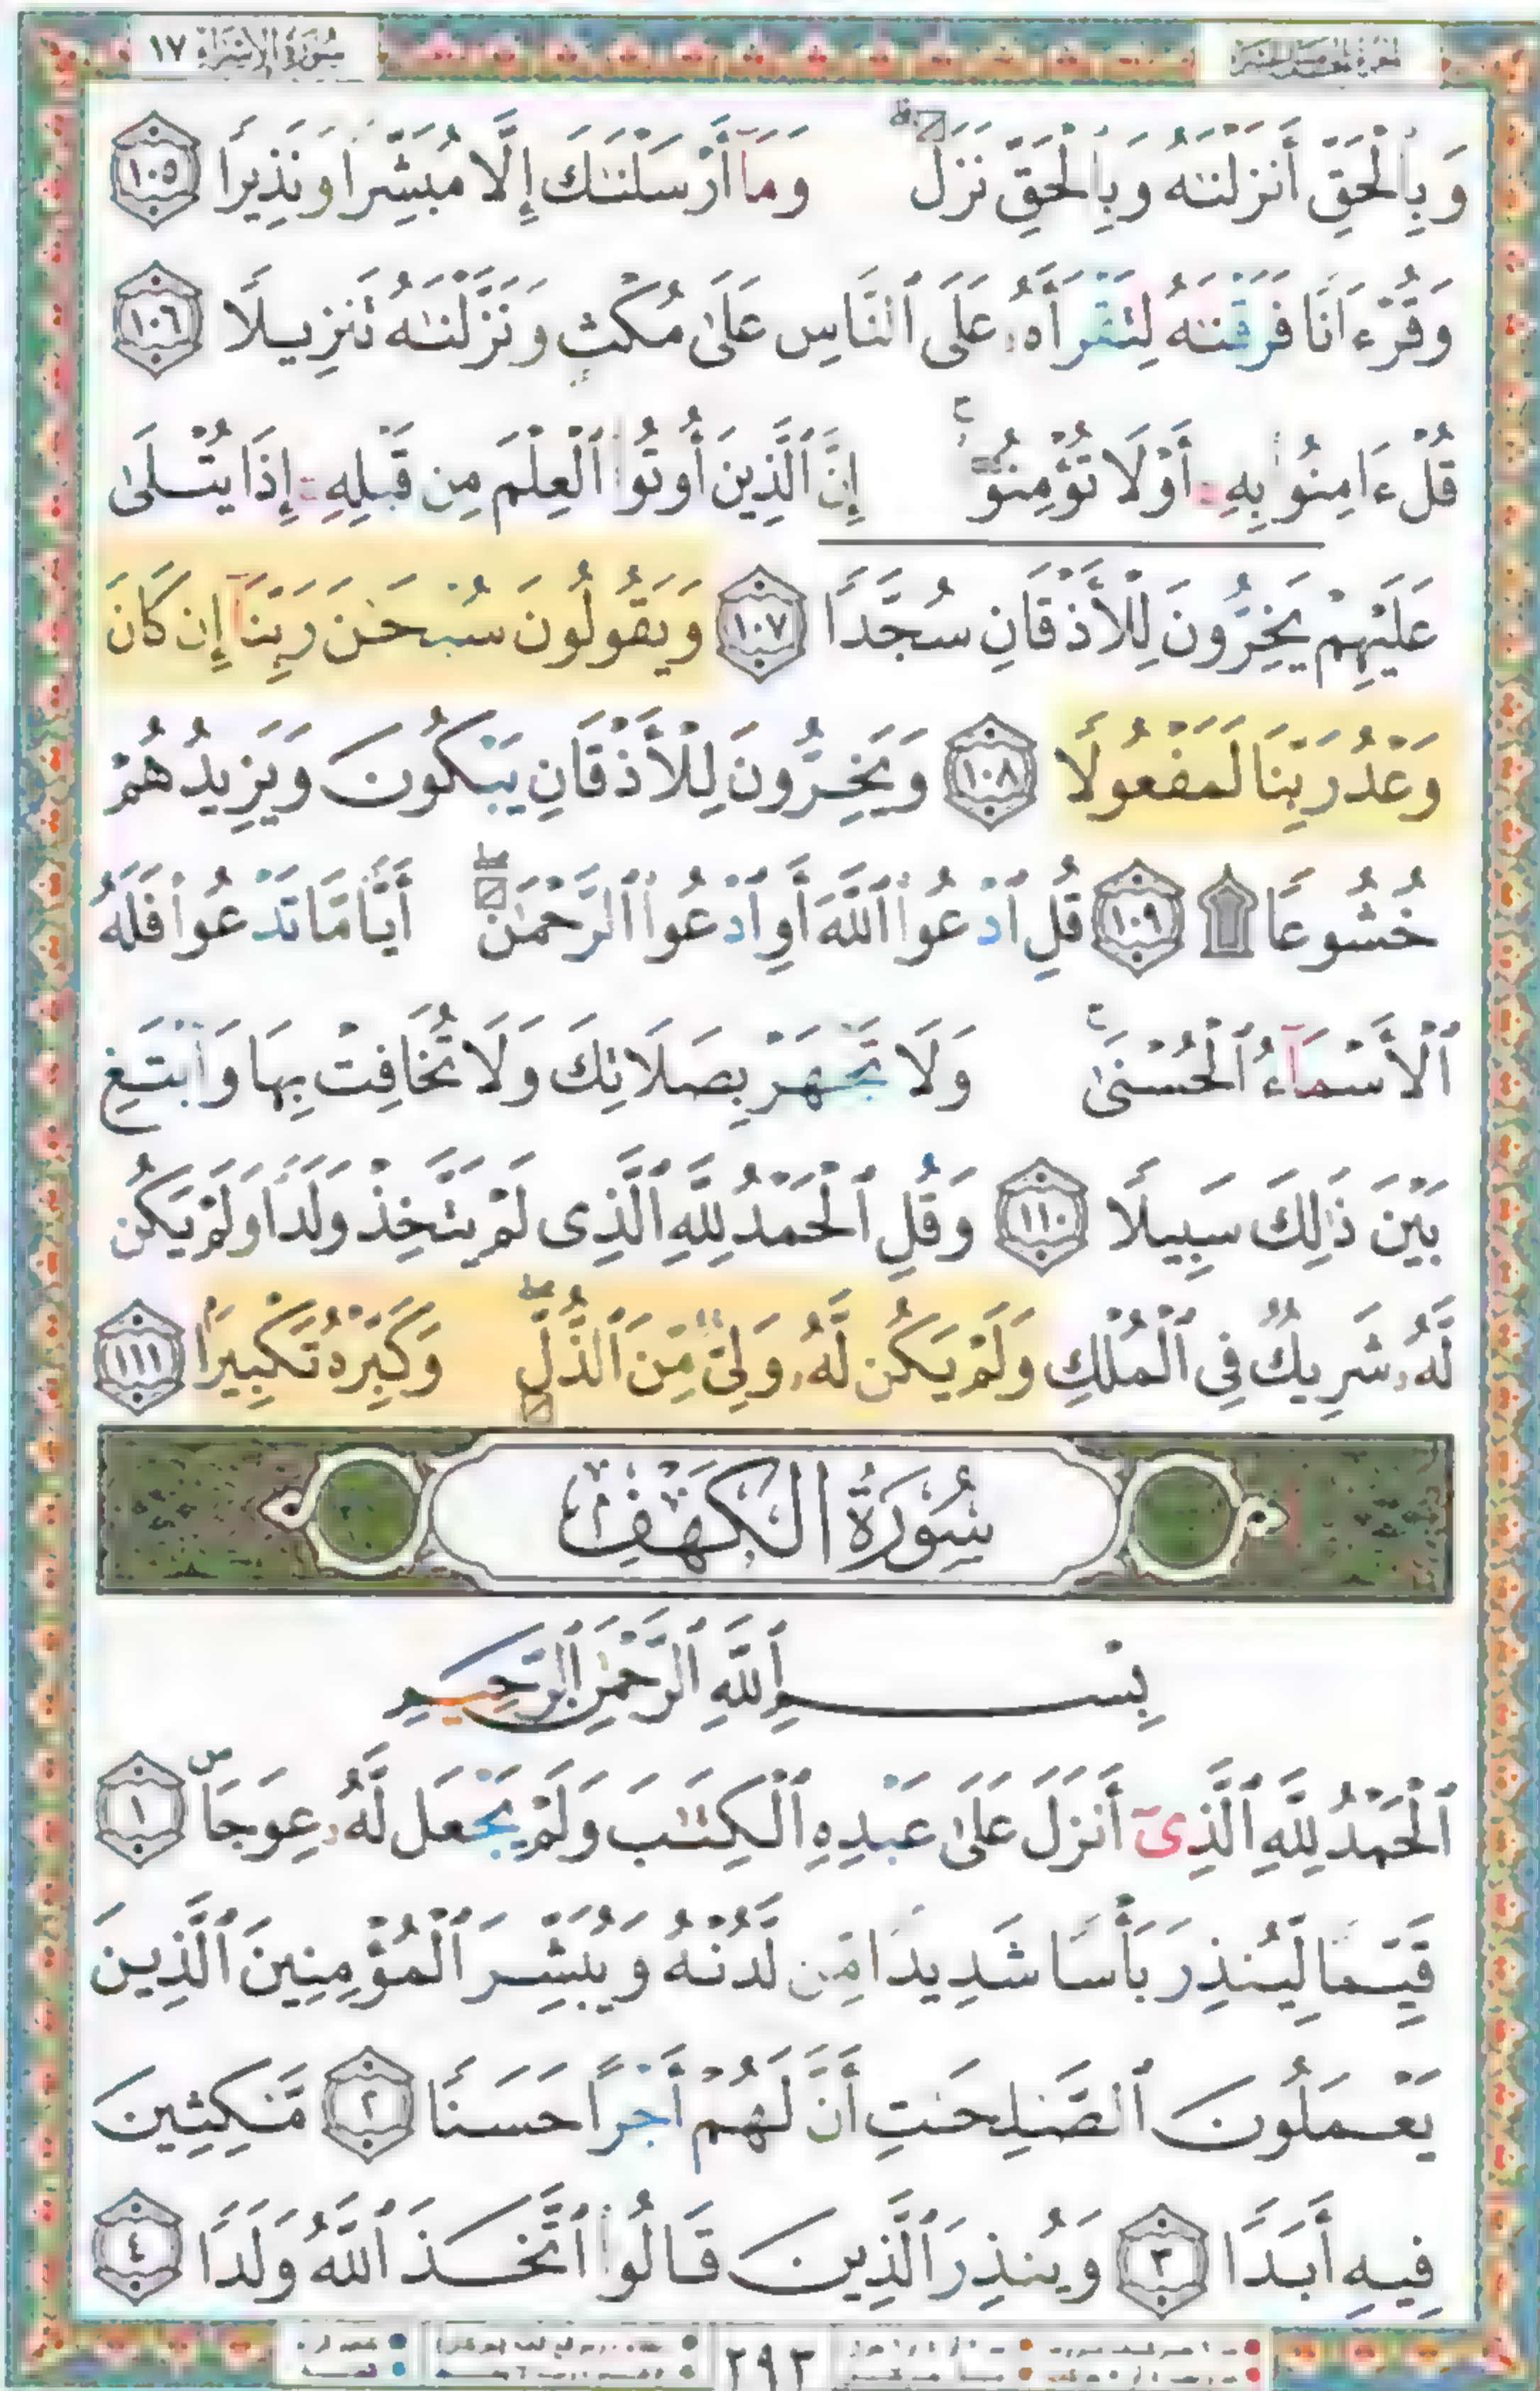 سُورَةُ الْإِسْرَاءِ ١٧
وَبِٱلْحَقِّ أَنزَلْنَـٰهُ وَبِٱلْحَقِّ نَزَلَ ۗ وَمَآ أَرْسَلْنَـٰكَ إِلَّا مُبَشِّرًا وَنَذِيرًا ١٠٥
وَقُرْءَانًا فَرَقْنَـٰهُ لِتَقْرَأَهُۥ عَلَى ٱلنَّاسِ عَلَىٰ مُكْثٍ وَنَزَّلْنَـٰهُ تَنزِيلًا ١٠٦
قُلْ ءَامِنُوا۟ بِهِۦٓ أَوْ لَا تُؤْمِنُوٓا۟ ۚ إِنَّ ٱلَّذِينَ أُوتُوا۟ ٱلْعِلْمَ مِن قَبْلِهِۦٓ إِذَا يُتْلَىٰ
عَلَيْهِمْ يَخِرُّونَ لِلْأَذْقَانِ سُجَّدًا ١٠٧ وَيَقُولُونَ سُبْحَـٰنَ رَبِّنَآ إِن كَانَ
وَعْدُ رَبِّنَا لَمَفْعُولًا ١٠٨ وَيَخِرُّونَ لِلْأَذْقَانِ يَبْكُونَ وَيَزِيدُهُمْ
خُشُوعًا ۩ ١٠٩ قُلِ ٱدْعُوا۟ ٱللَّهَ أَوِ ٱدْعُوا۟ ٱلرَّحْمَـٰنَ ۖ أَيًّا مَّا تَدْعُوا۟ فَلَهُ
ٱلْأَسْمَآءُ ٱلْحُسْنَىٰ ۚ وَلَا تَجْهَرْ بِصَلَاتِكَ وَلَا تُخَافِتْ بِهَا وَٱبْتَغِ
بَيْنَ ذَٰلِكَ سَبِيلًا ١١٠ وَقُلِ ٱلْحَمْدُ لِلَّهِ ٱلَّذِى لَمْ يَتَّخِذْ وَلَدًا وَلَمْ يَكُن
لَّهُۥ شَرِيكٌ فِى ٱلْمُلْكِ وَلَمْ يَكُن لَّهُۥ وَلِىٌّ مِّنَ ٱلذُّلِّ ۖ وَكَبِّرْهُ تَكْبِيرًۢا ١١١
سُورَةُ الكَهْفِ
بِسْمِ ٱللَّهِ ٱلرَّحْمَـٰنِ ٱلرَّحِيمِ
ٱلْحَمْدُ لِلَّهِ ٱلَّذِىٓ أَنزَلَ عَلَىٰ عَبْدِهِ ٱلْكِتَـٰبَ وَلَمْ يَجْعَل لَّهُۥ عِوَجَاۜ ١
قَيِّمًا لِّيُنذِرَ بَأْسًا شَدِيدًا مِّن لَّدُنْهُ وَيُبَشِّرَ ٱلْمُؤْمِنِينَ ٱلَّذِينَ
يَعْمَلُونَ ٱلصَّـٰلِحَـٰتِ أَنَّ لَهُمْ أَجْرًا حَسَنًا ٢ مَّـٰكِثِينَ
فِيهِ أَبَدًا ٣ وَيُنذِرَ ٱلَّذِينَ قَالُوا۟ ٱتَّخَذَ ٱللَّهُ وَلَدًا ٤
٢٩٣